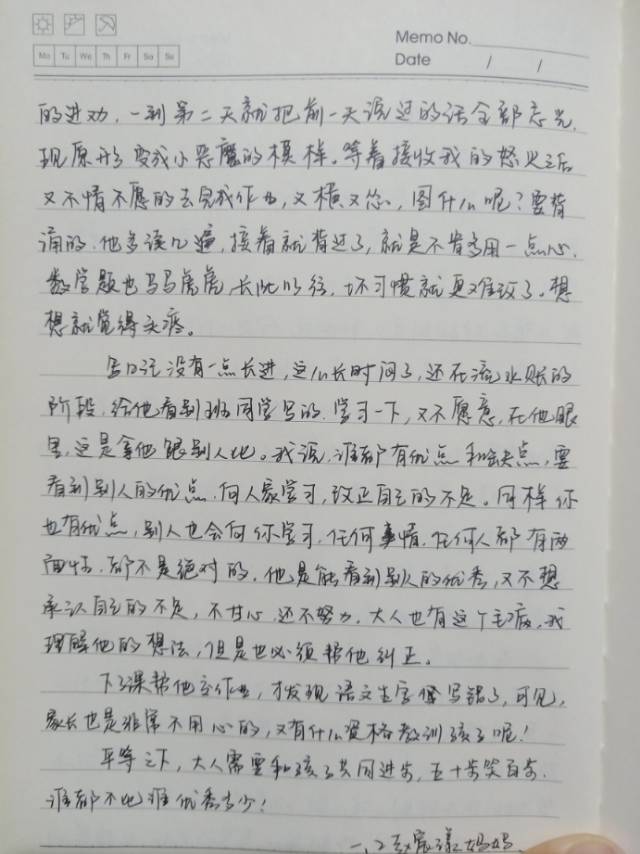 Memo No.
Mo Tu We Th Fr Sa Su
Date / /
的进劝，一到第二天就把前一天说过的话全部忘光，
现原形变成小恶魔的模样。等着接收我的怒火之后
又不情不愿的去完成作业，又横又怂，图什么呢？要背
诵的，他多读几遍，接着就背过了，就是不肯多用一点心，
数学题也马马虎虎，长此以往，坏习惯就更难改了。想
想就觉得头疼。
写日记没有一点长进，这么长时间了，还在流水账的
阶段，给他看别班同学写的，学习一下，又不愿意，在他眼
里，这是拿他跟别人比。我说，谁都有优点和缺点，要
看到别人的优点，向人家学习，改正自己的不足。同样你
也有优点，别人也会向你学习，任何事情，任何人都有两
面性，都不是绝对的，他是能看到别人的优秀，又不想
承认自己的不足，不甘心，还不努力，大人也有这个毛病，我
理解他的想法，但是也必须帮他纠正。
下了课帮他交作业，才发现语文生字保写错了，可见，
家长也是非常不用心的，又有什么资格教训孩子呢！
平等之下，大人需要和孩子共同进步，五十步笑百步，
谁都不比谁优秀多少！
妈妈